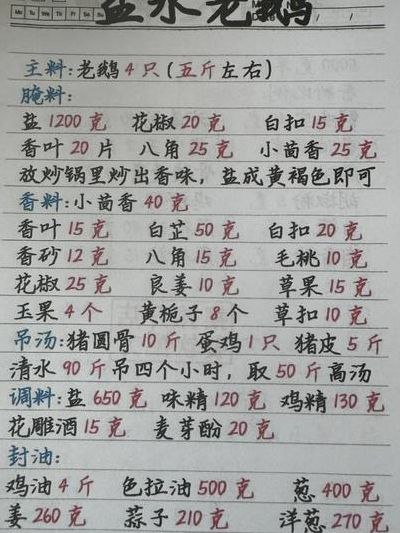 盐水老鹅
Mo Tu We Th Fr Sa Su
主料:老鹅4只(五斤左右)
腌料:
盐1200克 花椒20克 白扣15克
香叶20片 八角25克 小茴香25克
放炒锅里炒出香味,盐成黄褐色即可
香料:小茴香40克
香叶15克 白芷50克 白扣20克
香砂12克 八角15克 毛桃10克
花椒25克 良姜10克 草果15克
玉果4个 黄栀子8个 草扣10克
吊汤:猪圆骨10斤 蛋鸡1只 猪皮5斤
清水90斤吊四个小时,取50斤高汤
调料:盐650克 味精120克 鸡精130克
花雕酒15克 麦芽酚20克
封油:
鸡油4斤 色拉油500克 葱400克
姜260克 蒜子210克 洋葱270克